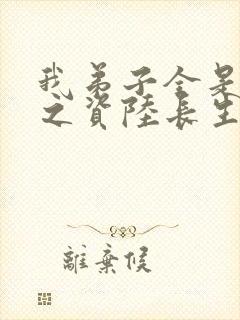 我弟子全是
之資陸長生
離棄候